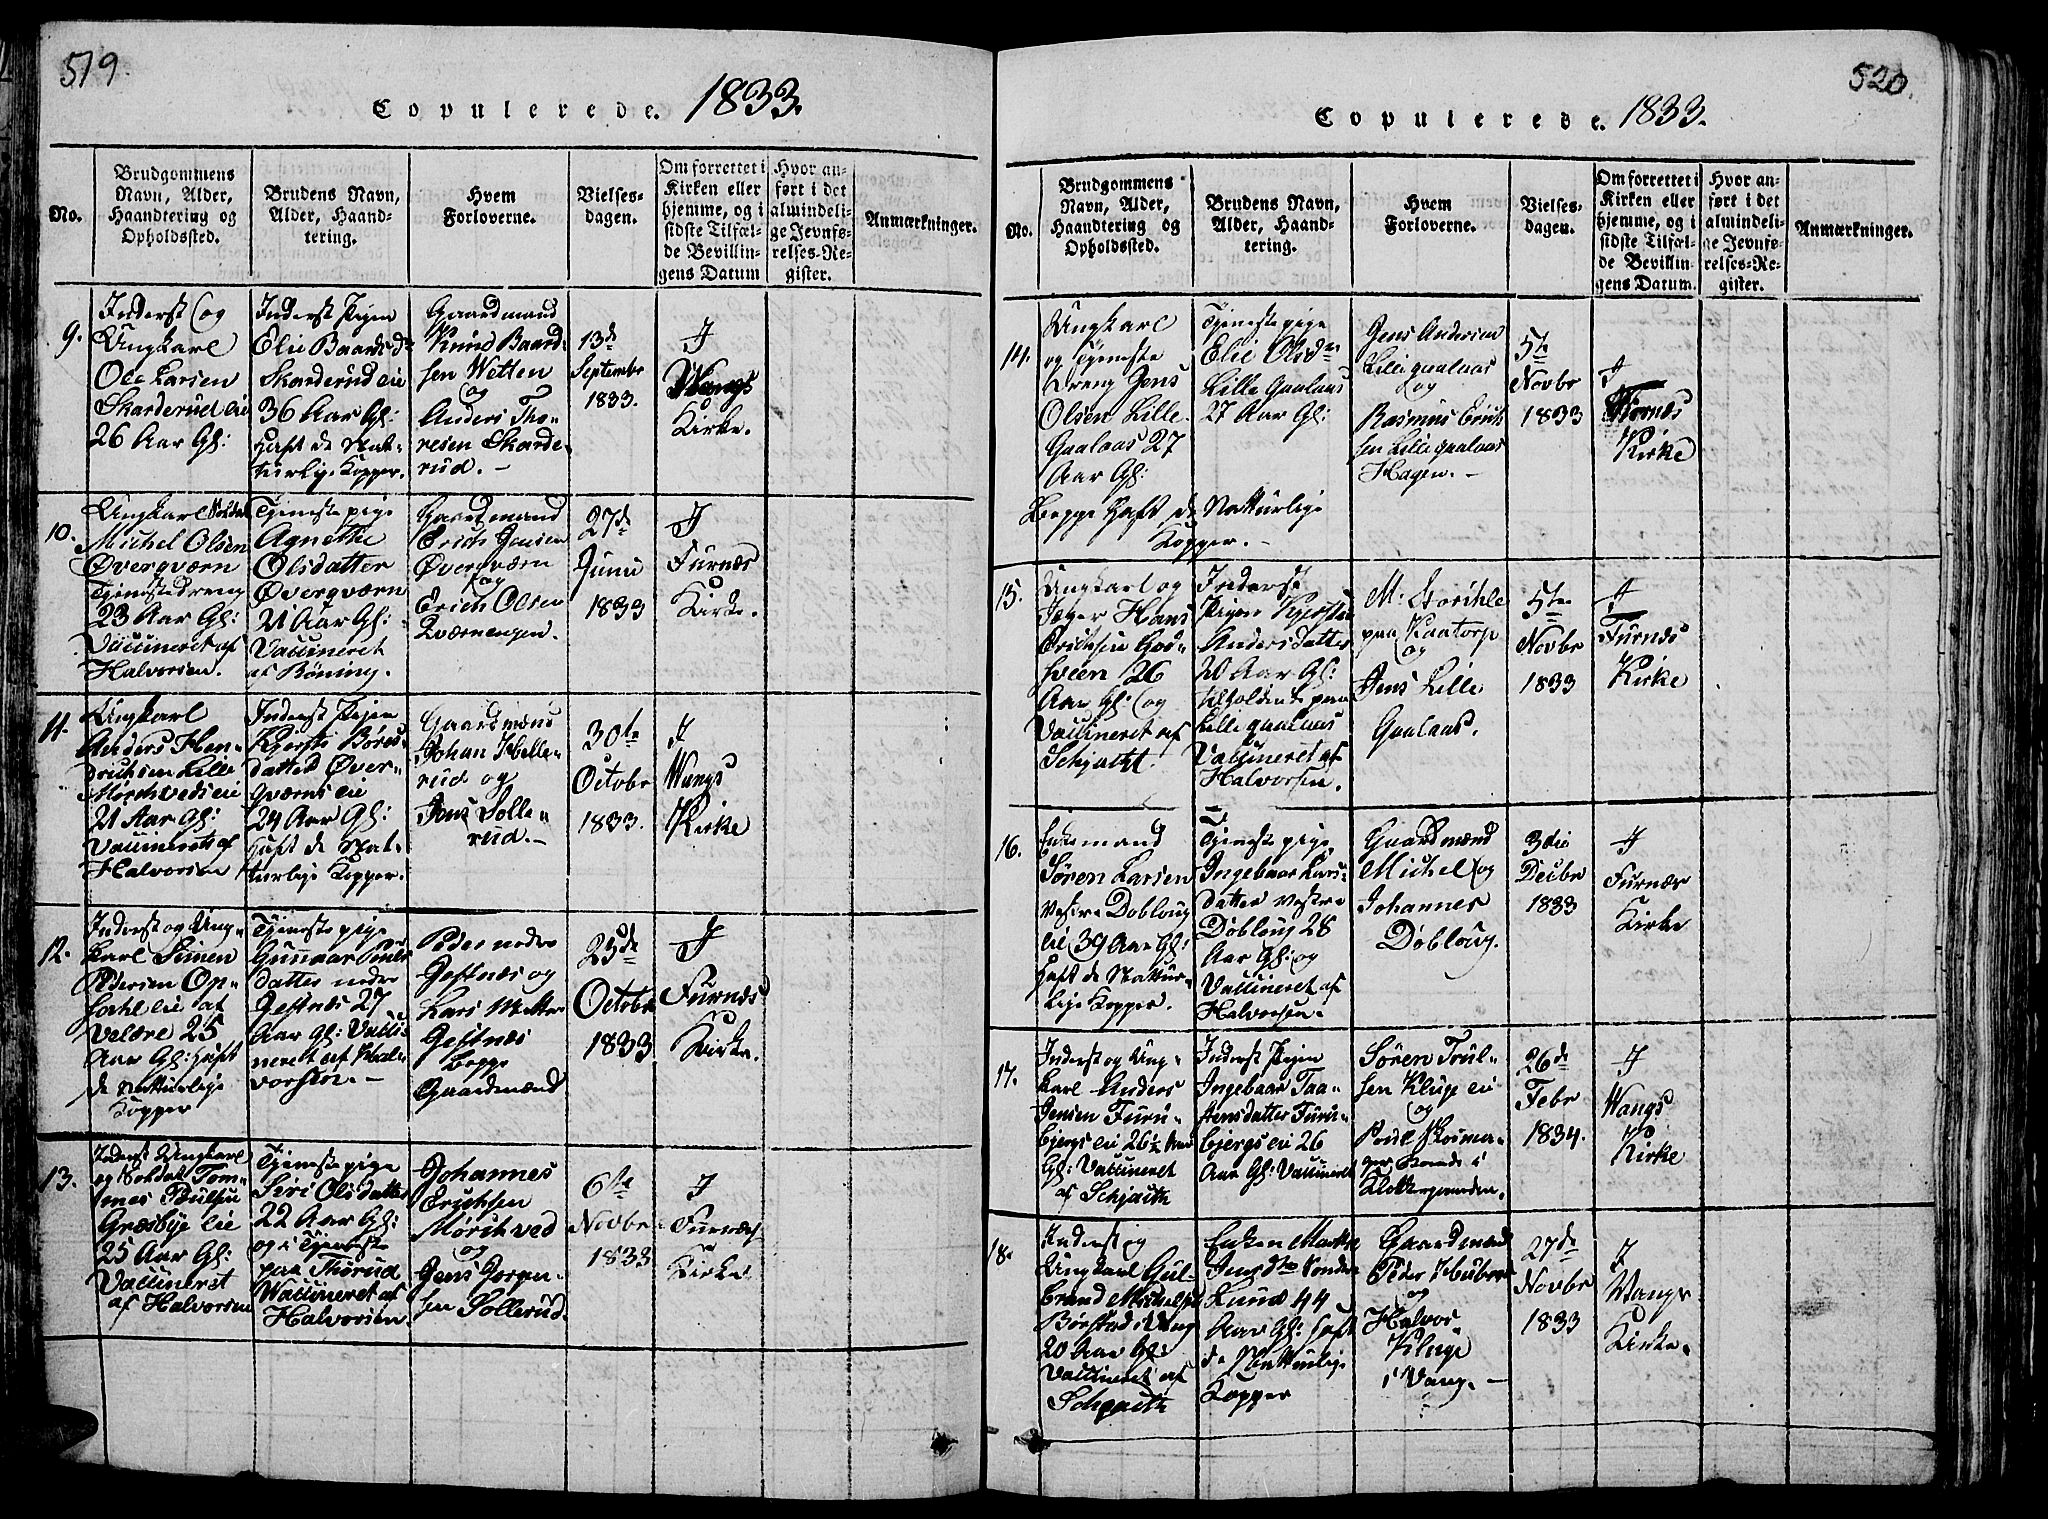 519.
Copulerede. 1833.
No.
Brudgommens
Navn, Alder,
Haandtering og
Opholdssted.
Brudens Navn,
Alder, Haand-
tering.
Hvem
Forloverne.
Vielses-
dagen.
Om forrettet i
Kirken eller
hjemme, og i
sidste Tilfæl-
de Bevillin-
gens Datum
Hvor an-
ført i det
almindeli-
ge Jevnfø-
relses-Re-
gister.
Anmærkninger.
9.
Inderst og
Ungkarl
Ole Larsen
Skarderud eie
26 Aar Gl:
Inderst Pigen
Elie Baardsdr
Skarderud eie
36 Aar Gl:
haft de Nat-
turlige Kopper.
Gaardmænd
Knud Baard-
sen Wetten
og
Anders Tho-
resen Skarde-
rud. -
13de
September
1833.
I
Wangs
Kirke.
10.
Ungkarl Soldat
Michel Olsen
Øverqværn
Tjenestedreng
23 Aar Gl:
Vaccineret af
Halvorsen.
Tjenestepige
Agnethe
Olsdatter
Øverqværn
21 Aar Gl:
Vaccineret
af Bøning.
Gaardmænd
Erich Jensen
Øverqværn
og
Erich Olsen
Qværnengen.
27de
Junii
1833
I
Furnæs
Kirke.
11.
Ungkarl
Anders Hen-
drichsen Lille
Mørchveds eie
21 Aar Gl:
Vaccineret af
Halvorsen
Inderst Pigen
Kjersti Børes-
datter Øver-
qværns eie
24 Aar Gl:
haft de Nat-
turlige Kopper.
Gaardmænd
Johan Helle-
rud og
Jens Solle-
rud. -
30te
Octobr
1833.
I
Wangs
Kirke
12.
Inderst og Ung-
karl Simen
Pedersen Op-
sahl eie af
Veldre 25
Aar Gl: haft
de Natturlige
Kopper
Tjenestepige
Gunnar Peders
datter nedre
Jestnæs 27
Aar Gl: Vacci-
neret af Hal-
vorsen. -
Peder nedre
Jestnæs og
Lars Metter
Jestnæs
begge
Gaardmænd
25de
Octobr
1833
I
Furnæs
Kirke.
13.
Inderst Ungkarl
og Soldat Tom-
mes Poulsen
Græsbye eie
25 Aar Gl:
Vaccineret
af Halvorsen
Tjenestepige
Siri Olsdatter
22 Aar Gl:
og i Tjeneste
paa Thorud
Waccineret af
Halvorsen
Johannes
Erichsen
Mørchved
og
Jens Jorgen-
sen Sollerud.
6te
Novbr
1833
I
Furnæs
Kirke
520.
Copulerede. 1833.
No.
Brudgommens
Navn, Alder,
Haandtering og
Opholdssted.
Brudens Navn,
Alder, Haand-
tering.
Hvem
Forloverne.
Vielses-
dagen.
Om forrettet i
Kirken eller
hjemme, og i
sidste Tilfæl-
de Bevillin-
gens Datum.
Hvor an-
ført i det
almindeli-
ge Jevnfø-
relses-Re-
gister.
Anmærkninger.
14.
Ungkarl
og Tjeneste
dreng Jens
Olsen Lille-
Gaalaas 27
Aar Gl:
Begge haft de Natturlige
Kopper. -
Tjenestepige
Elie Olsdr
Lille Gaalaas
27 Aar Gl:
Jens Andersen
Lillegaalaas
og
Rasmus Erich
sen Lillegaalaas
Hagen. -
5te
Novbr
1833
I
Furnæs
Kirke
15.
Ungkarl og
Jæger Hans
Erichsen Gos-
veen 26
Aar Gl: og
Vaccineret af
Schjøtt.
Inderst
Pigen Kjersten
Anders datter
20 Aar Gl:
Opholdende paa
Lillegaalaas
Vaccineret af
Halvorsen.
M. Storihle
paa Kaatorp
og
Jens Lille
Gaalaas.
5te
Novbr
1833
I
Furnæs
Kirke
16.
Enkemand
Søren Larsen
Vestre Dobloug
eie 39 Aar Gl:
haft de Nattur-
lige Kopper.
Tjenestepige
Ingebaar Lars-
datter Vestre
Dobloug 28
Aar Gl: og
Vaccineret af
Halvorsen.
Gaardmænd
Michel og
Johannes
Dobloug.
3die
Decbr
1833
I
Furnæs
Kirke
17.
Inderst og Ung-
karl Anders
Jensen Furu-
bjergs eie 26 1/2 Aar
Gl: Vaccineret
af Schjøtt
Inderst Pigen
Ingebaar Taa-
stensdatter Furu-
bjergs eie 26
Aar Gl: Vaccineret
Søren Trul-
sen Kluge eie
og
Poul Skoma-
ger Boende i
Klokkergaarden.
26de
Febr
1834.
I
Wangs
Kirke
18.
Inderst og
Ungkarl Gul-
brand Michelsen
Borstad i Vang
20 Aar Gl:
Vaccineret af
Schjøtt
Enken Marthe
Jensdtr Sondre
Lund 44
Aar Gl: haft
de Natturlige
Kopper
Gaardmænd
Peder Huber
og
Halvor
Kluge
i Vang. -
27de
Novbr
1833
I
Wangs
Kirke.